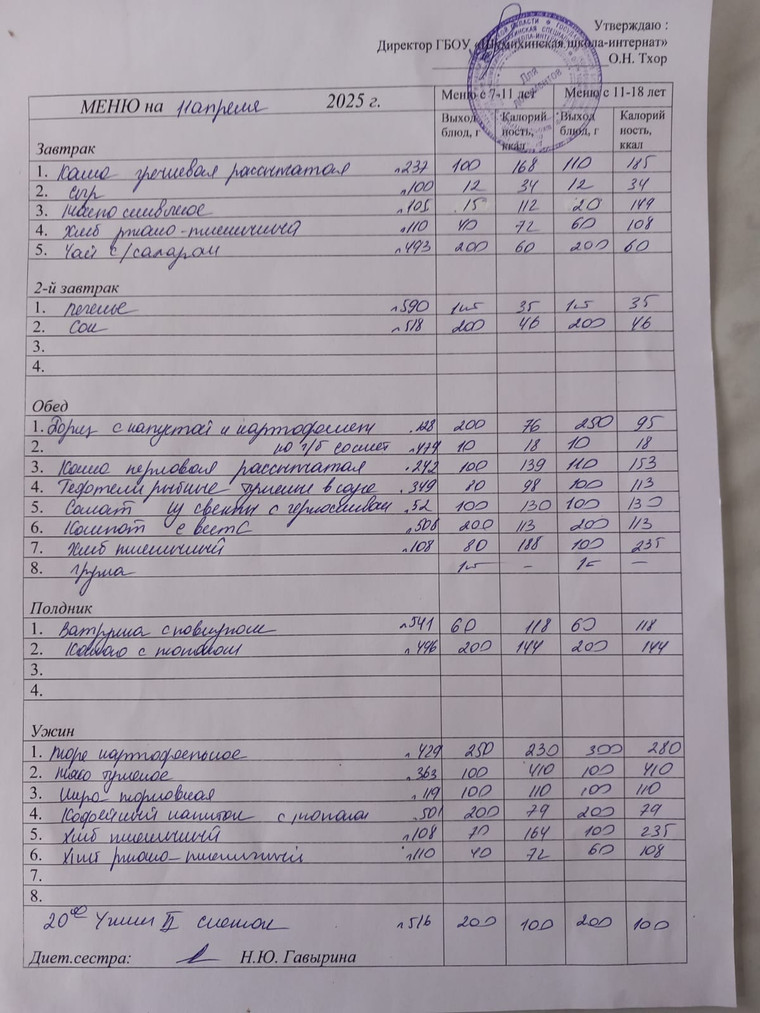 Утверждаю :
Директор ГБОУ «Шумихинская школа-интернат»
О.Н. Тхор
Для документов
МЕНЮ на 11 апреля 2025 г.
Меню с 7-11 лет Меню с 11-18 лет
Выход блюд, г Калорийность, ккал Выход блюд, г Калорийность, ккал
Завтрак
1. Каша гречневая рассыпчатая №237 100 168 110 185
2. Сыр №100 12 34 12 34
3. Масло сливочное №105 15 112 20 149
4. Хлеб ржано-пшеничный №110 40 72 60 108
5. Чай с/сахаром №493 200 60 200 60
2-й завтрак
1. Печенье №590 1шт 35 1шт 35
2. Сок №518 200 46 200 46
3.
4.
Обед
1. Борщ с капустой и картофелем №128 200 76 250 95
2. №479 10 18 10 18
3. Каша перловая рассыпчатая №242 100 139 110 153
4. Тефтели рыбные тушеные в соусе №349 80 98 100 113
5. Салат из свеклы с черносливом №52 100 130 100 130
6. Компот с №508 200 113 200 113
7. Хлеб пшеничный №108 80 188 100 235
8. груша 1шт – 1шт –
Полдник
1. Ватрушка с повидлом №541 60 118 60 118
2. Какао с молоком №496 200 144 200 144
3.
4.
Ужин
1. Пюре картофельное №429 250 230 300 280
2. Мясо тушеное №363 100 410 100 410
3. Икра морковная №119 100 110 100 110
4. Кофейный напиток с молоком №501 200 79 200 79
5. Хлеб пшеничный №108 70 164 100 235
6. Хлеб ржано-пшеничный №110 40 72 60 108
7.
8.
20⁰⁰ Ужин II снежок №516 200 100 200 100
Диет.сестра: Н.Ю. Гавырина